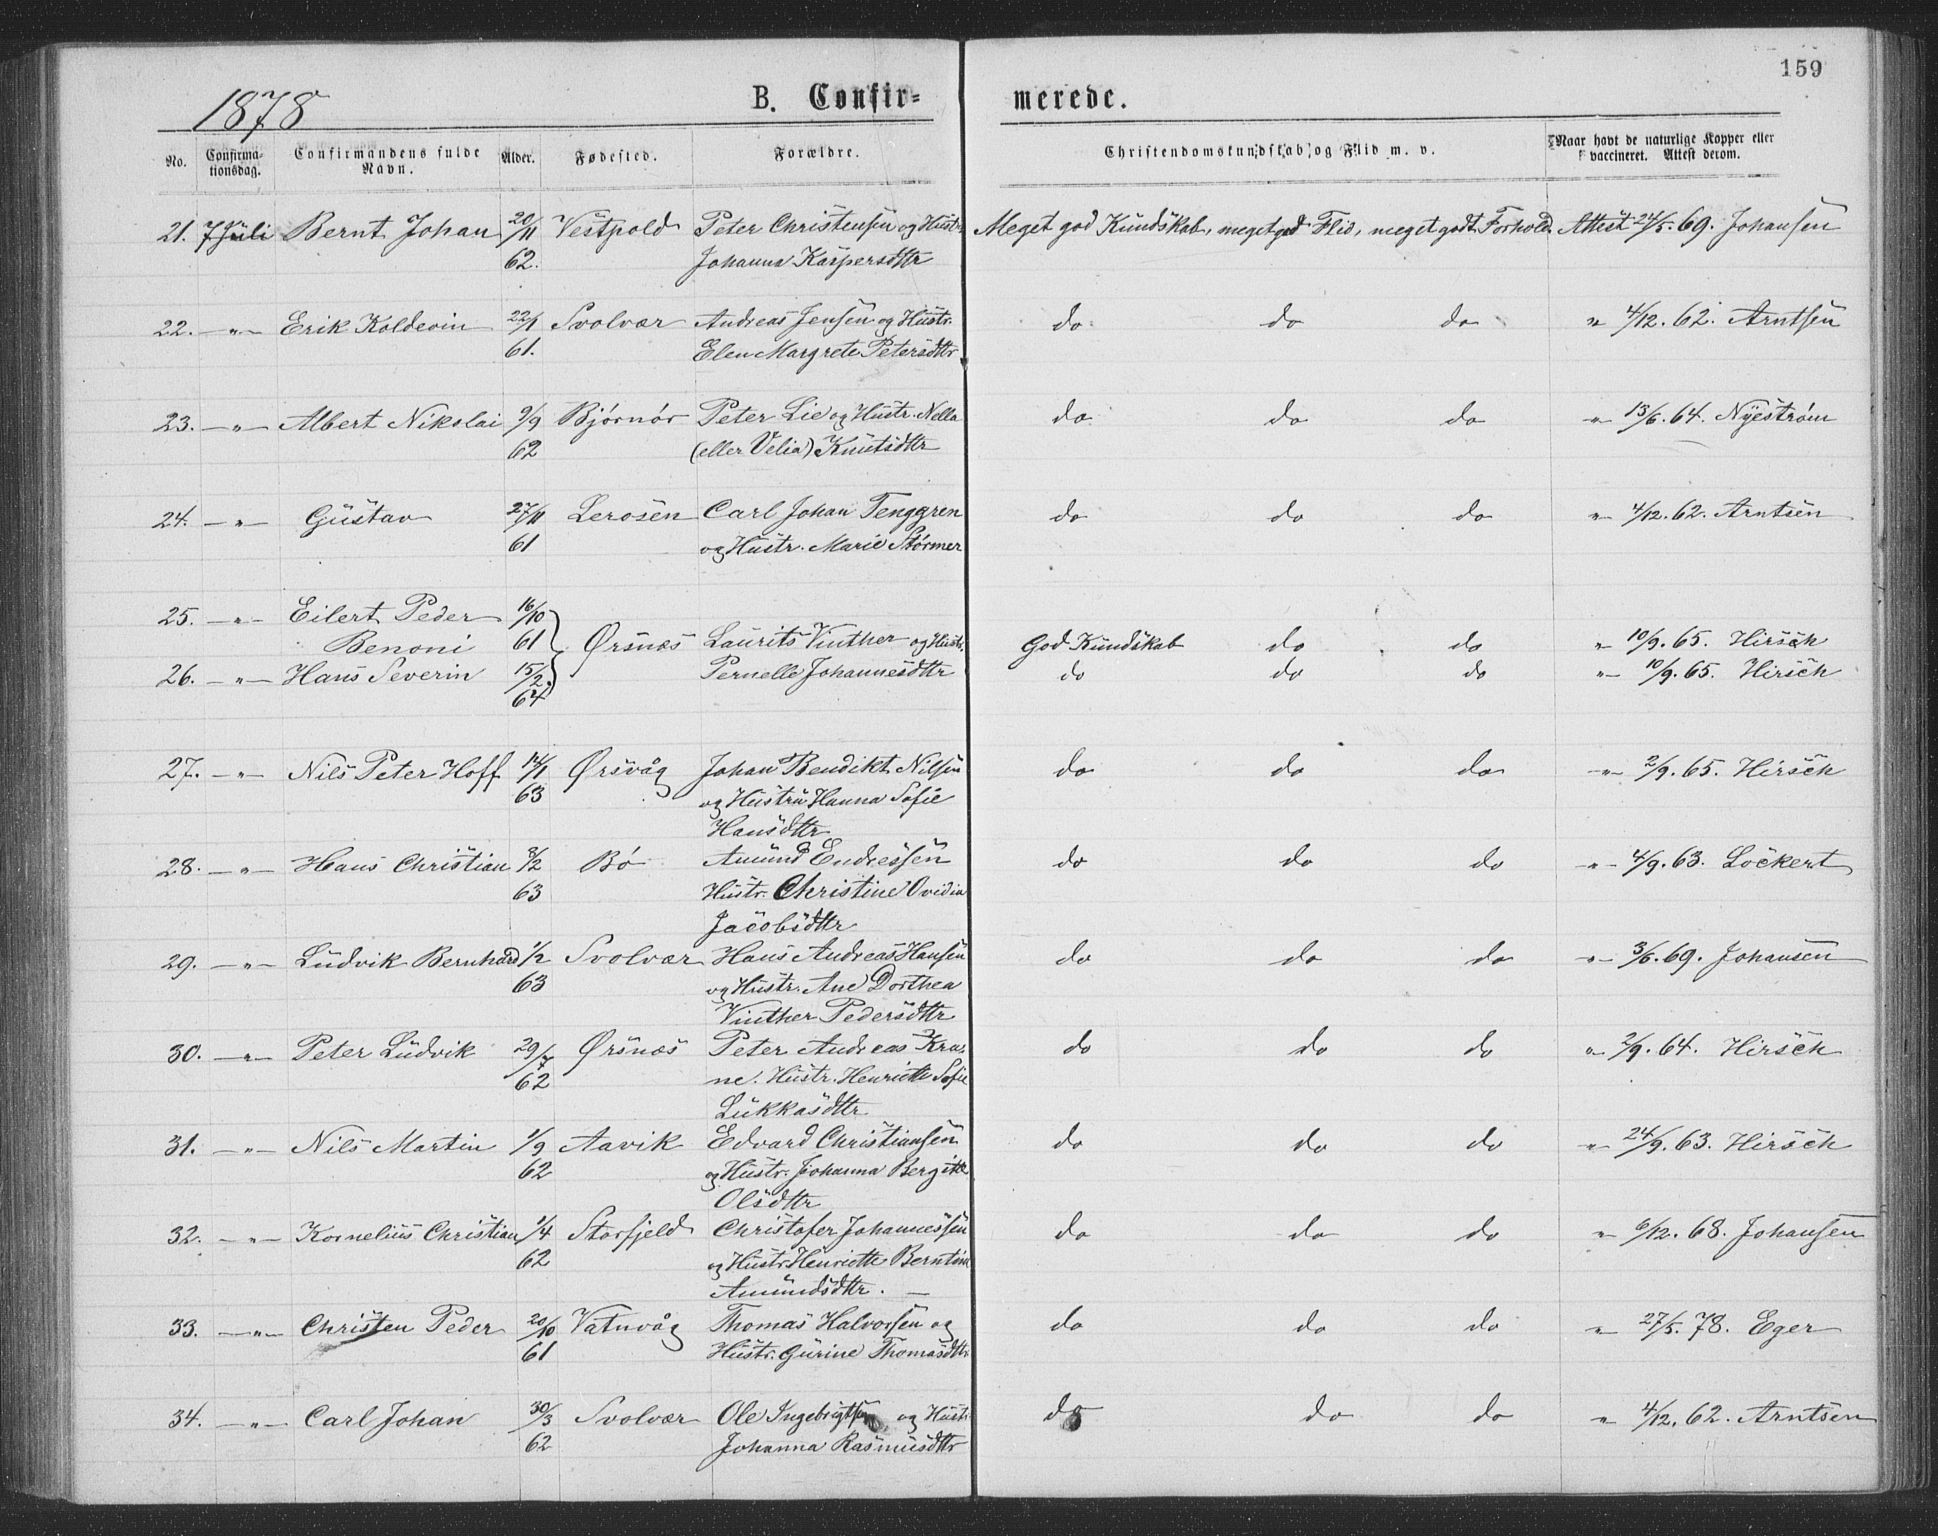 159
1878 B. Confir= merede.
No. Confirma-tionsdag. Confirmandens fulde Navn. Alder. Fødested. Forældre. Christendomskundskab og Flid m. v. Naar havt de naturlige Kopper eller vaccineret. Attest derom.
21. 7 Juli Bernt Johan 20/11 Vestpold Peter Christensen og Hustr. Meget god Kundskab, meget god Flid, meget godt Forhold Attest 24/5. 69. Johansen
62. Johanna Kaspersdttr
22. -"- Erik Koldevin 22/1 Svolvær Andreas Jensen og Hustr. do do do " 4/12. 62. Arntsen
61. Elen Margrete Petersdttr
23. -"- Albert Nikolai 9/9 Bjørnør Peter Lie og Hustr. Nella do do do " 13/6. 64. Nyestrøm
62 (eller Velia) Knutsdttr
24. -"- Gustav 27/11 Lerosen Carl Johan Tenggren do do do " 4/12. 62. Arntsen
61 og Hustr. Marie Størmer
25. -"- Eilert Peder 16/10
Benoni 61 Ørsnæs Laurits Vinther og Hustr. God Kundskab do do " 10/9. 65. Hirsch
26. -"- Hans Severin 15/2. Pernelle Johannesdttr do do do " 10/9. 65. Hirsch
64
27. -"- Nils Peter Hoff 14/1 Ørsvåg Johan Bendikt Nilsen do do do -"- 2/9. 65. Hirsch
63 og Hustru Hanna Sofie
Hansdttr
28. -"- Hans Christian 8/2 Bø Amund Endressen do do do -"- 4/9. 63. Lockert
63 Hustr. Christine Ovidia
Jacobsdttr
29. -"- Ludvik Bernhard 1/2 Svolvær Hans Andreas Hansen do do do -"- 3/6. 69. Johansen
63 og Hustr. Ane Dorthea
Vinther Pedersdttr
30. -"- Peter Ludvik 29/7 Ørsnæs Peter Andreas Kra- do do do " 2/9. 64. Hirsch
62 ne. Hustr. Henriette Sofie
Lukkasdttr
31. -"- Nils Martin 1/9 Aavik Edvard Christiansen do do do " 24/9. 63. Hirsch
62 og Hustr. Johanna Bergitte
Olsdttr
32. -"- Kornelius Christian 1/4 Storfjeld Christofer Johannessen do do do " 6/12. 68. Johansen
62 og Hustr. Henriette Berntine
Amundsdttr. —
33. -"- Christen Peder 20/10 Vatnvåg Thomas Halvorsen og do do do " 27/5. 78. Eger
61 Hustr. Gurine Thomasdttr
34. -"- Carl Johan 30/3 Svolvær Ole Ingebrigtsen og Hustr. do do do " 4/12. 62. Arntsen
62 Johanna Rasmusdttr